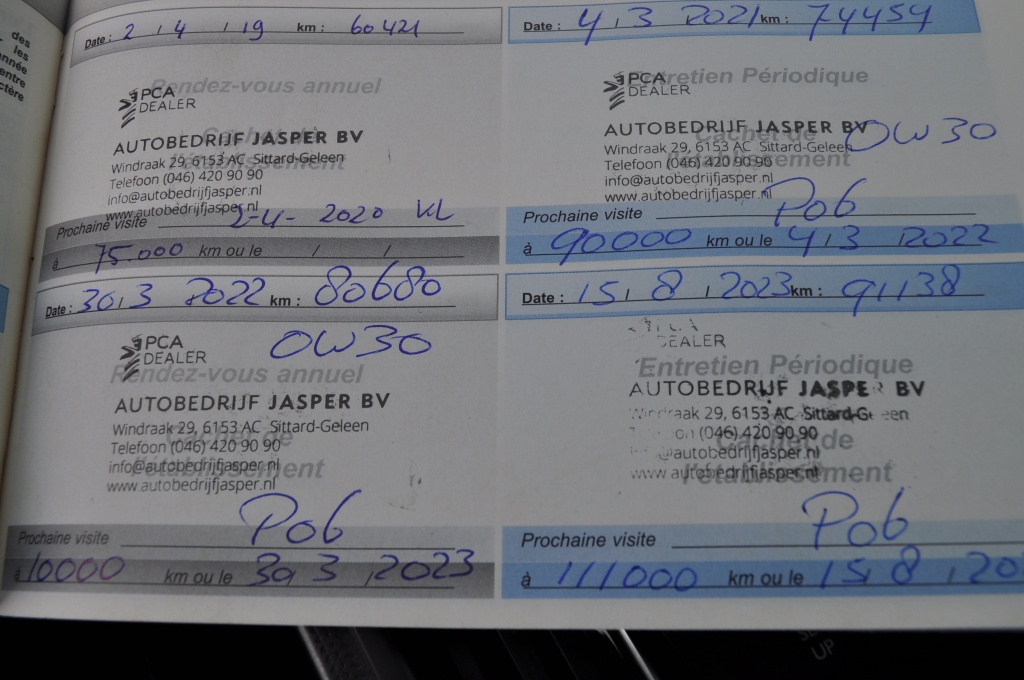 des
les
nnée
entre
ctère
Date : 2 / 4 / 19 km : 60421
Rendez-vous annuel
PCA
DEALER
Cachet de
l'établissement
AUTOBEDRIJF JASPER BV
Windraak 29, 6153 AC Sittard-Geleen
Telefoon (046) 420 90 90
info@autobedrijfjasper.nl
www.autobedrijfjasper.nl
Prochaine visite 2-4- 2020 VL
à 75.000 km ou le / /
Date : 4 / 3 2021 km : 74454
Entretien Périodique
PCA
DEALER
Cachet de
l'établissement
AUTOBEDRIJF JASPER BV
OW30
Windraak 29, 6153 AC Sittard-Geleen
Telefoon (046) 420 90 90
info@autobedrijfjasper.nl
www.autobedrijfjasper.nl
Prochaine visite Pob
à 90000 km ou le 4 / 3 / 2022
Date : 30 / 3 2022 km : 80680
PCA
DEALER
OW30
Rendez-vous annuel
AUTOBEDRIJF JASPER BV
Windraak 29, 6153 AC Sittard-Geleen
Telefoon (046) 420 90 90
Cachet de
info@autobedrijfjasper.nl
l'établissement
www.autobedrijfjasper.nl
Pob
Prochaine visite
à 10000 km ou le 30 / 3 / 2023
Date : 15 / 8 / 2023 km : 91138
PCA
DEALER
Entretien Périodique
AUTOBEDRIJF JASPER BV
Windraak 29, 6153 AC Sittard-Geleen
(046) 420 90 90
Cachet de
autobedrijfjasper.nl
www.autobedrijfjasper.nl
l'établissement
Pob
Prochaine visite
à 111000 km ou le 15 / 8 / 20
UP